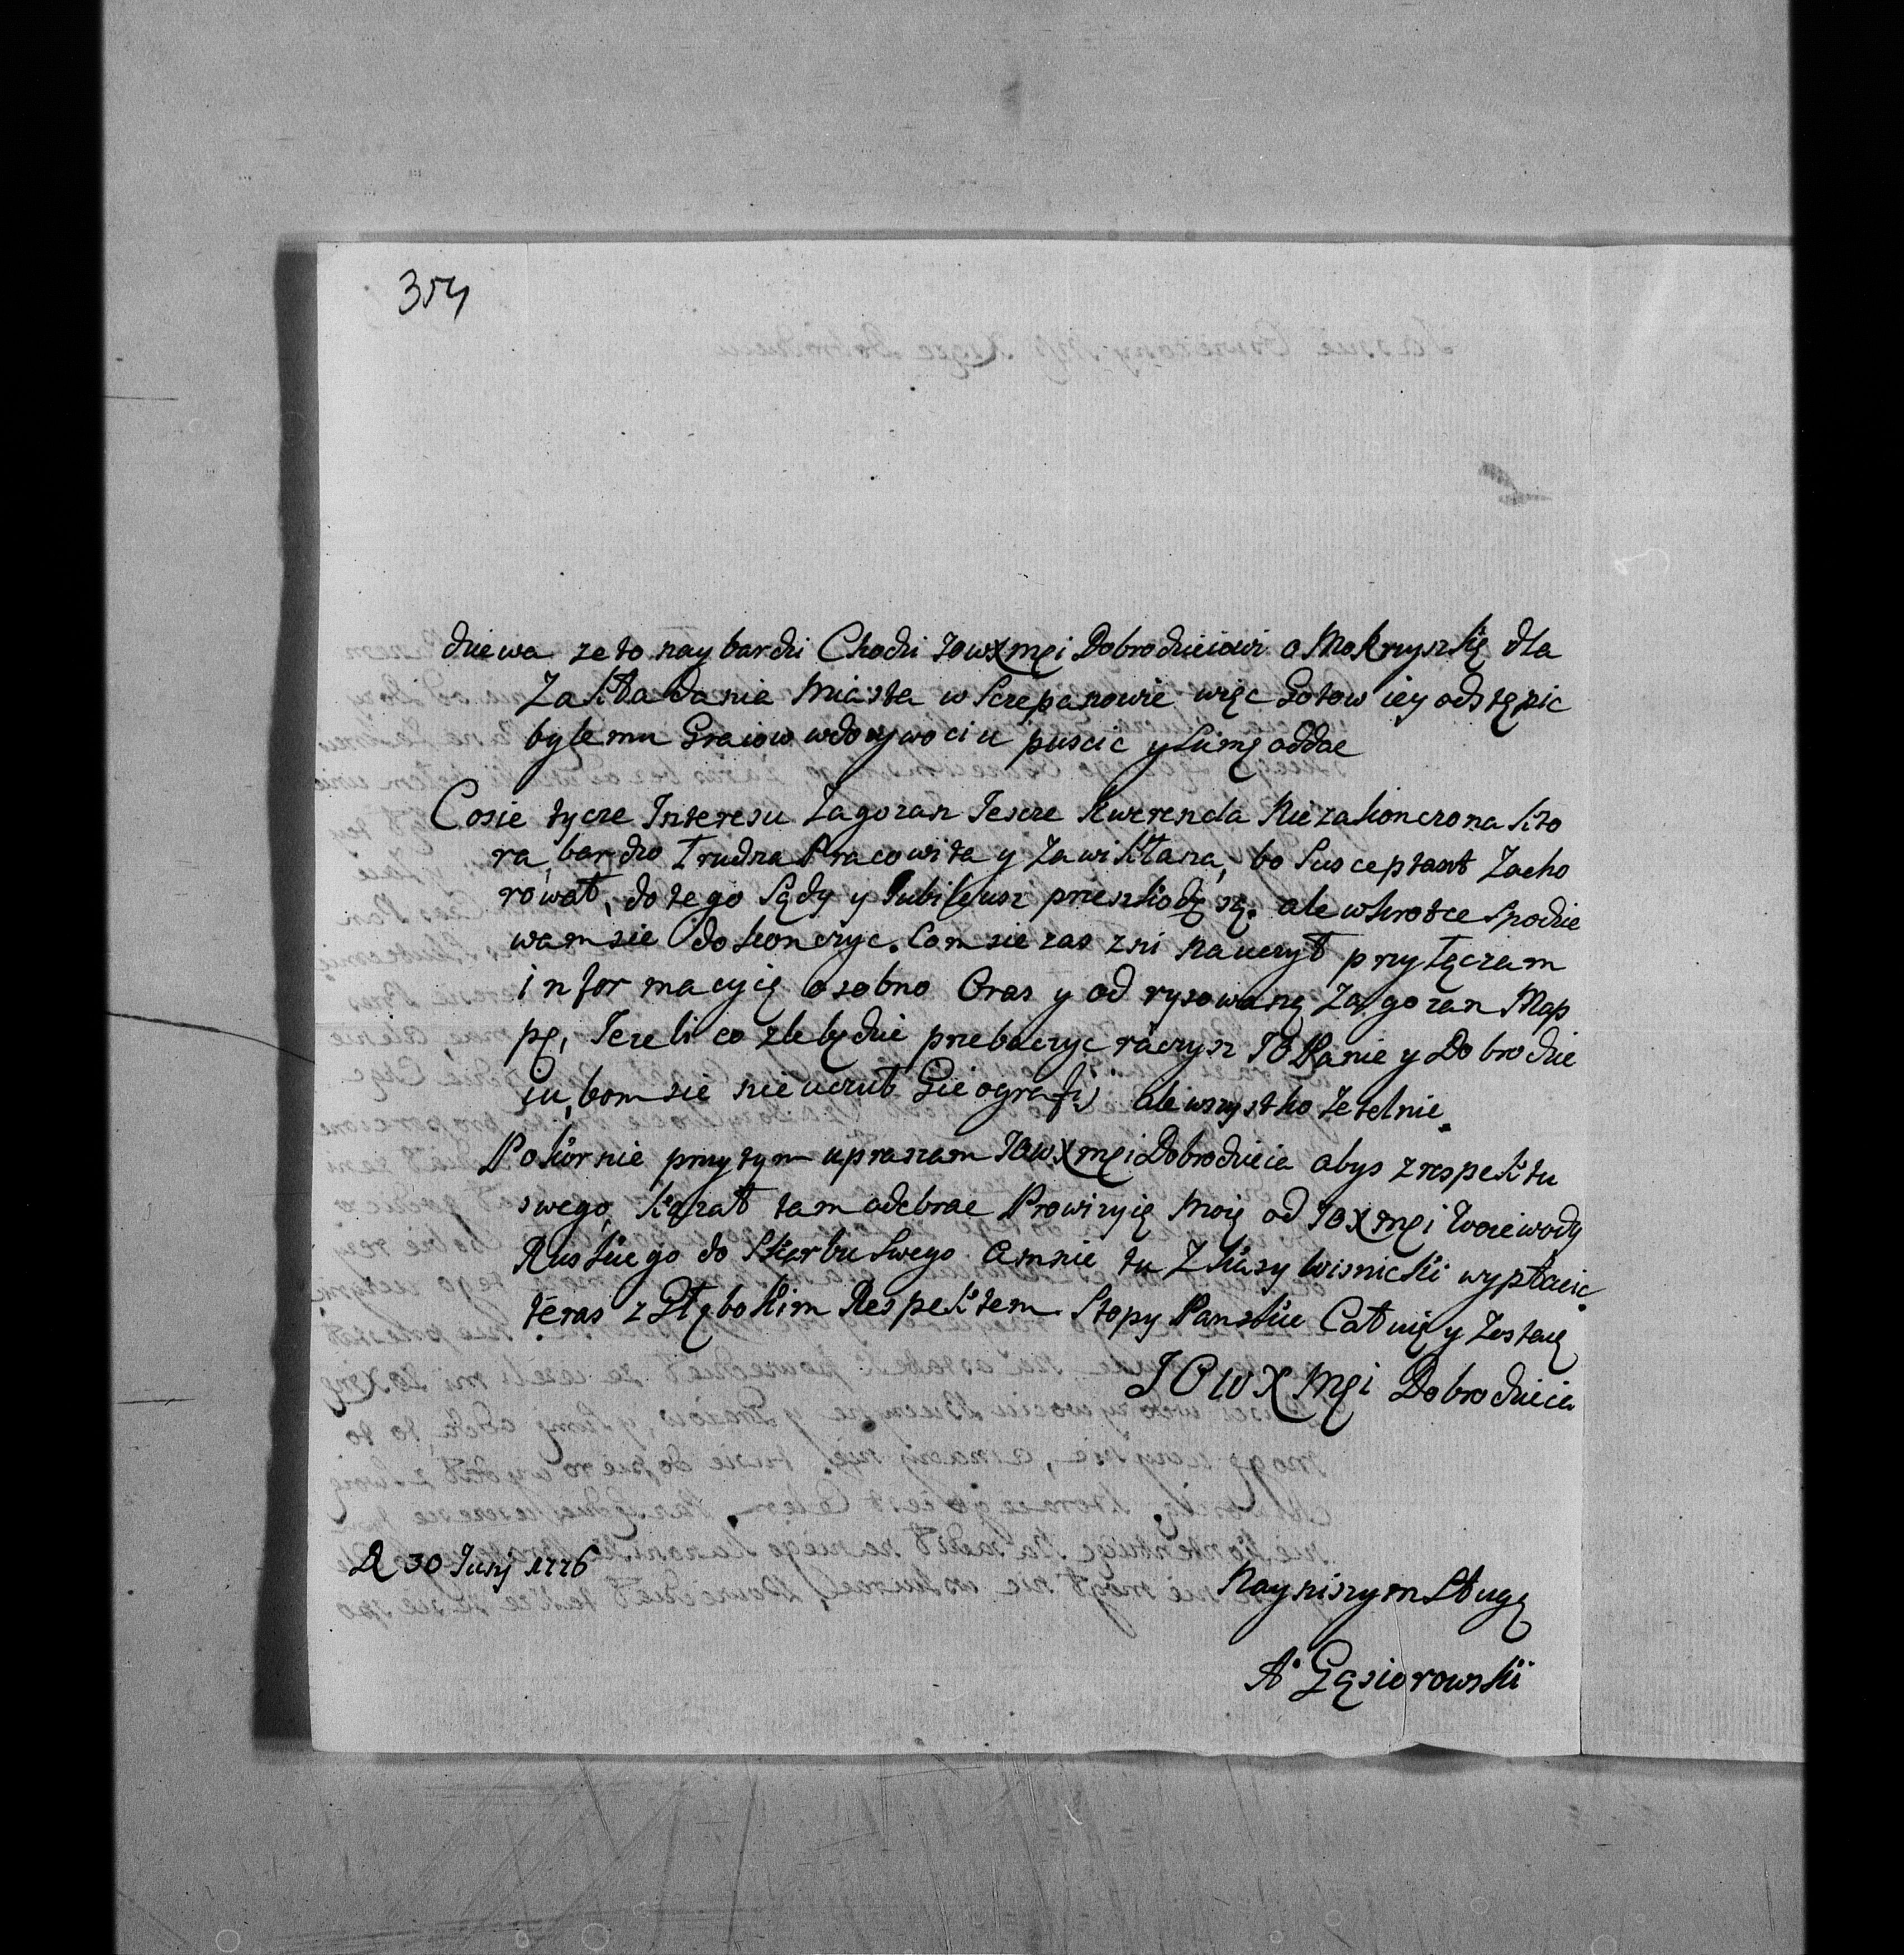 354
dziewa ze to naybardzi Chodzi JOWXMci Dobrodzieiowi o Mokrzyszkę dla
Zakładania Miasta w Sczepanowie więc Gotow iey odstępic
byle mu Graiow w dozywociu puscic y Sumę oddac
Co sie tycze Interesu Zagozan Jescze Kwerenda Niezakonczona kto
ra, bardzo Trudna Pracowita y Zawikłana, bo Susceptant Zacho
rował, do tego Sądy y Jubileusz przeszkodzą są. ale wkrotce Spodzie
wam sie dokonczyc. Com sie zas z ni nauczył przyłączam
informacyię osobno Oras y odrysowaną Zagozan Map
pę, Jezeli co zle będzie przebaczyc raczysz JO Panie y Dobrodzie
iu, bom sie nie uczuł Gieografij ale wszystko Zetelnie.
Pokornie przytym upraszam JOWXMci Dobrodzieia abys z respektu
swego, kazał tam odebrac Prowizyię Moię od JOXMci Woiewody
Ruskiego do Skarbu Swego a mnie tu Z kasy Wisnicki wypłacic
teras z Głębokim Respektem Stopy Panskie Całuię y Zostaię
JOWXMci Dobrodzieia
D 30 Junj 1776
Nayniszym Sługą
A Gąsiorowski